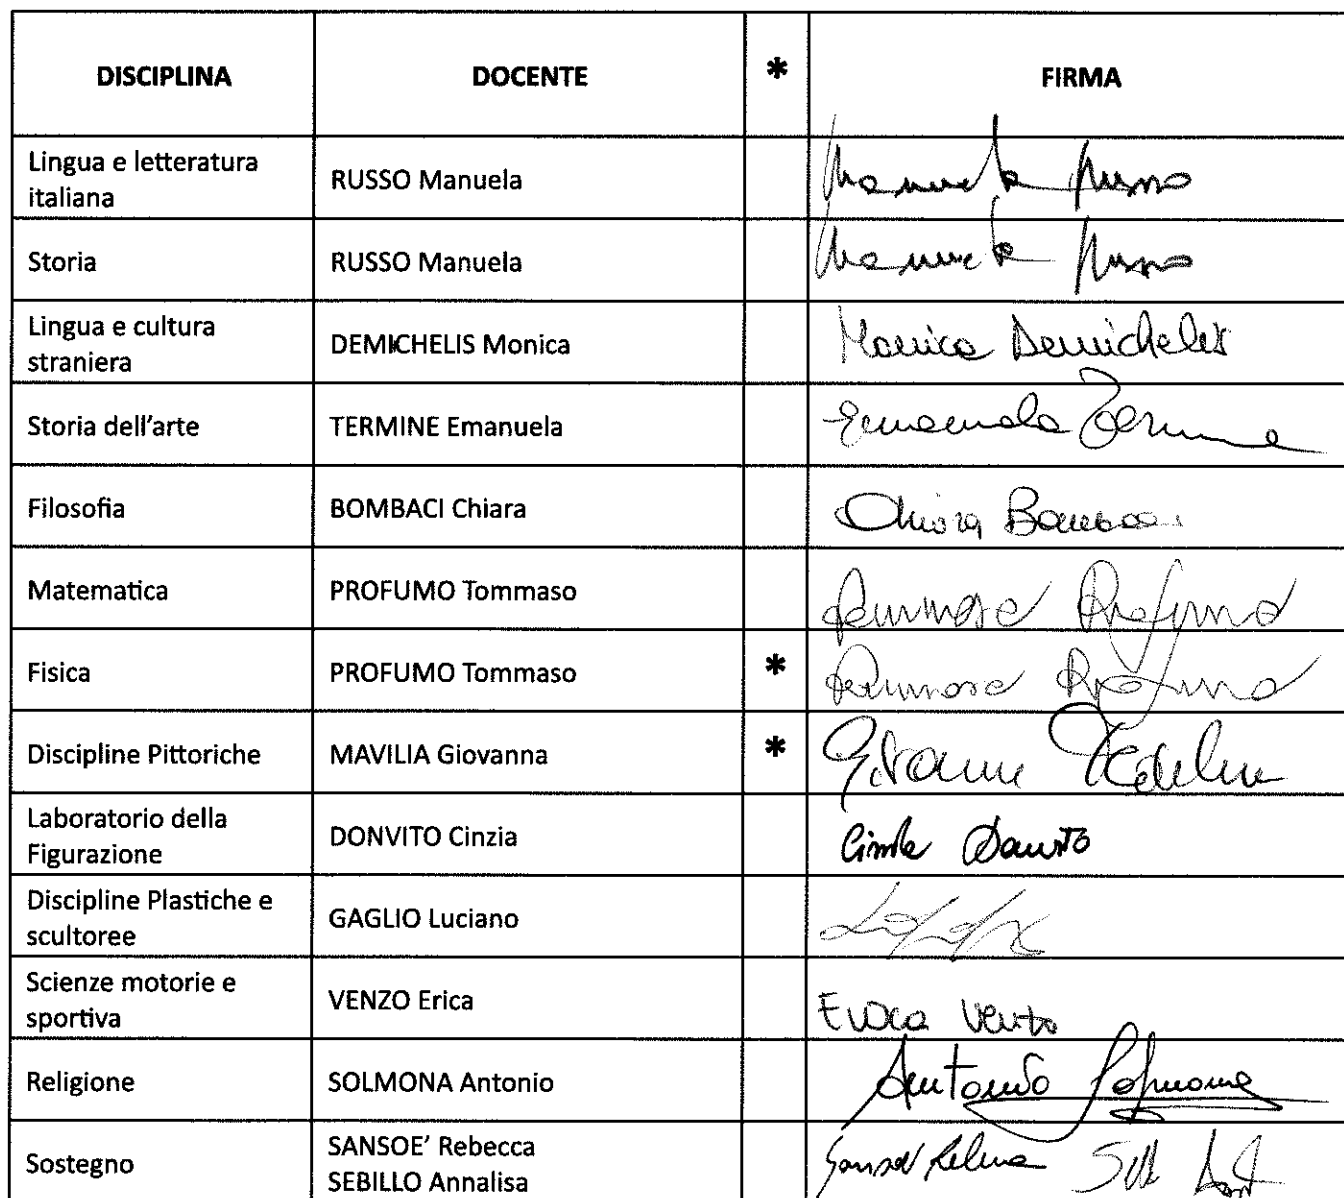 DISCIPLINA DOCENTE * FIRMA
Lingua e letteratura
italiana
RUSSO Manuela Manuela Russo
Storia RUSSO Manuela Manuela Russo
Lingua e cultura
straniera
DEMICHELIS Monica Monica Demichelis
Storia dell'arte TERMINE Emanuela Emanuela Termine
Filosofia BOMBACI Chiara Chiara Bombaci
Matematica PROFUMO Tommaso Tommaso Profumo
Fisica PROFUMO Tommaso * Tommaso Profumo
Discipline Pittoriche MAVILIA Giovanna *
Laboratorio della
Figurazione
DONVITO Cinzia Cinzia Donvito
Discipline Plastiche e
scultoree
GAGLIO Luciano
Scienze motorie e
sportiva
VENZO Erica Erica Venzo
Religione SOLMONA Antonio Antonio Solmona
Sostegno
SANSOE' Rebecca
SEBILLO Annalisa